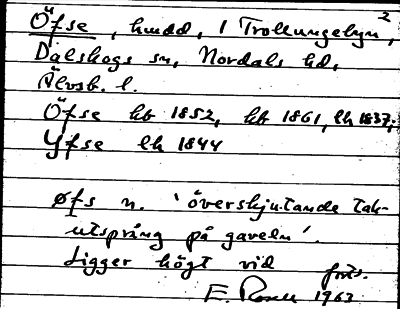 Öfse, hmdd, i Trollungebyn²,
Dalskogs sn, Nordals hd,
Älvsb. l.
Öfse kb 1852, kb 1861, lh 1837;
Yfse lh 1844
øfs n. 'överskjutande tak-
utsprång på gaveln'.
Ligger högt vid forts.
E. 1963